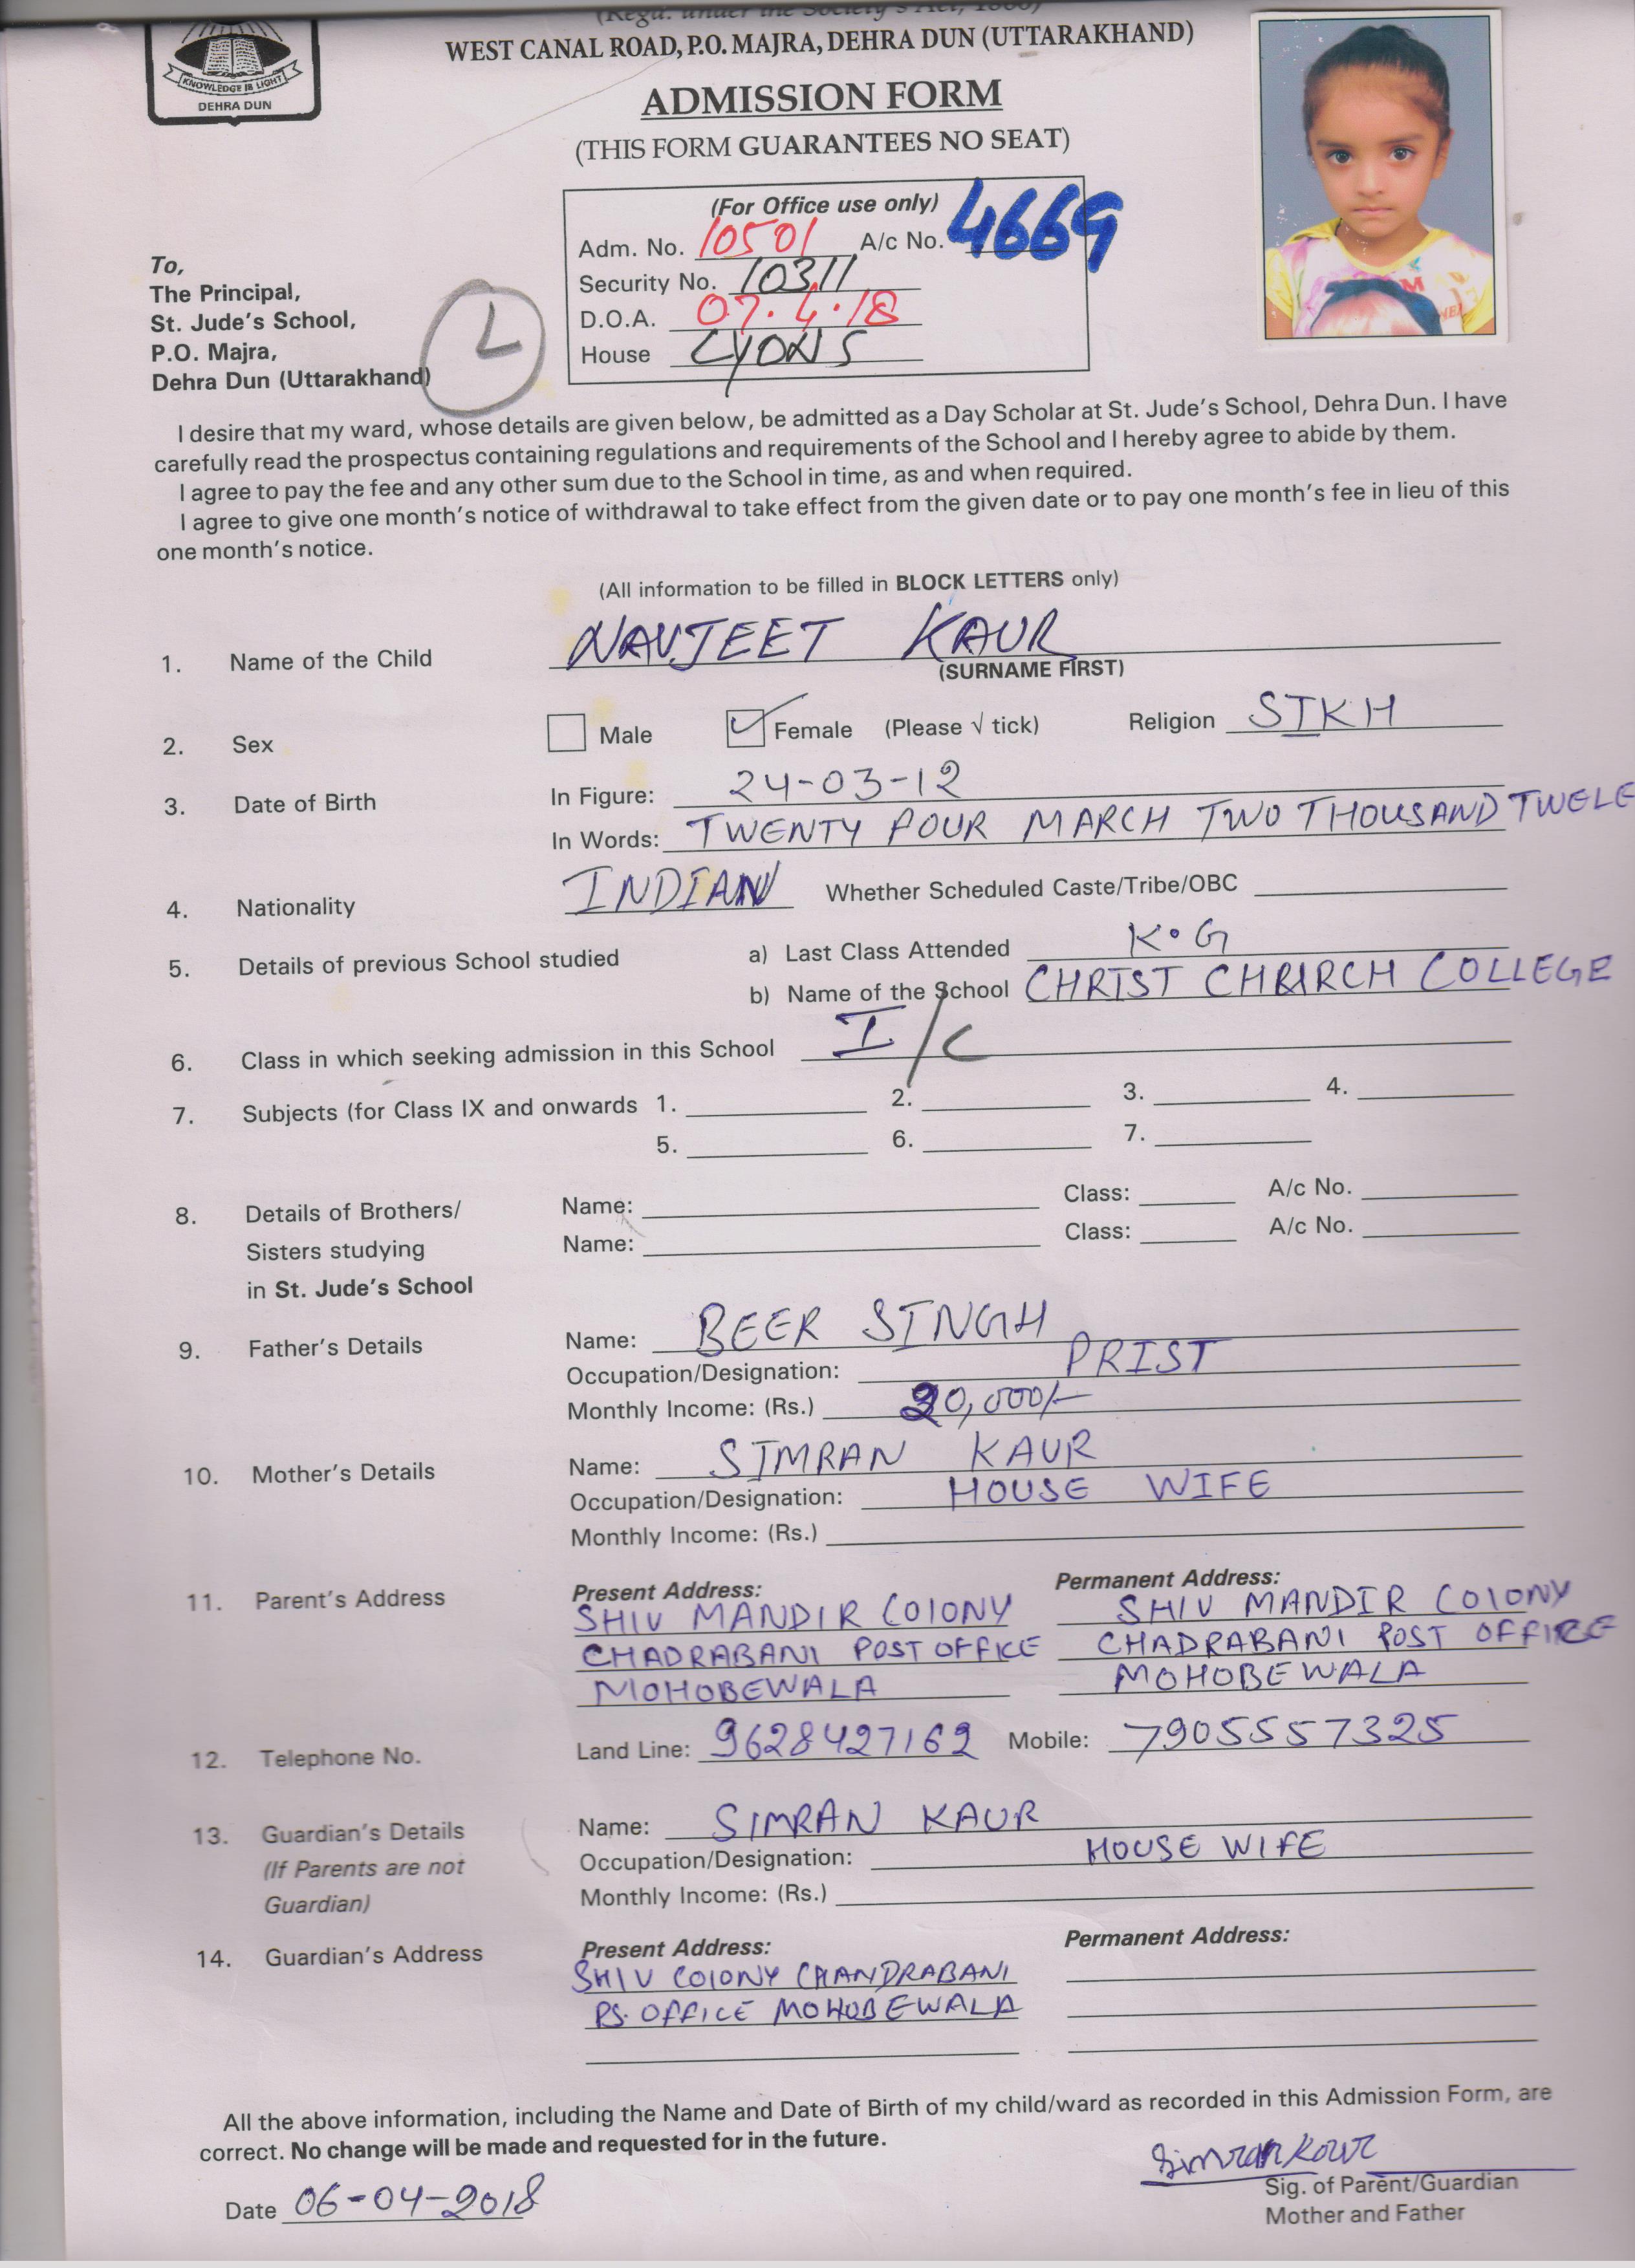 (Regd. under the Society's Act, 1860)
WEST CANAL ROAD, P.O. MAJRA, DEHRA DUN (UTTARAKHAND)
KNOWLEDGE IS LIGHT
DEHRA DUN
ADMISSION FORM
(THIS FORM GUARANTEES NO SEAT)
(For Office use only)
Adm. No. 10501 A/c No. 4669
Security No. 10311
D.O.A. 07.4.18
House LYONS
To,
The Principal,
St. Jude's School,
P.O. Majra,
Dehra Dun (Uttarakhand)
L
I desire that my ward, whose details are given below, be admitted as a Day Scholar at St. Jude's School, Dehra Dun. I have
carefully read the prospectus containing regulations and requirements of the School and I hereby agree to abide by them.
I agree to pay the fee and any other sum due to the School in time, as and when required.
I agree to give one month's notice of withdrawal to take effect from the given date or to pay one month's fee in lieu of this
one month's notice.
(All information to be filled in BLOCK LETTERS only)
1. Name of the Child NAVJEET KAUR
(SURNAME FIRST)
2. Sex Male Female (Please √ tick) Religion SIKH
3. Date of Birth In Figure: 24-03-12
In Words: TWENTY FOUR MARCH TWO THOUSAND TWELE
4. Nationality INDIAN Whether Scheduled Caste/Tribe/OBC
5. Details of previous School studied a) Last Class Attended K.G
b) Name of the School CHRIST CHRURCH COLLEGE
6. Class in which seeking admission in this School I/C
7. Subjects (for Class IX and onwards 1. 2. 3. 4.
5. 6. 7.
8. Details of Brothers/ Name: Class: A/c No.
Sisters studying Name: Class: A/c No.
in St. Jude's School
9. Father's Details Name: BEER SINGH
Occupation/Designation: PRIST
Monthly Income: (Rs.) 20,000/-
10. Mother's Details Name: SIMRAN KAUR
Occupation/Designation: HOUSE WIFE
Monthly Income: (Rs.)
11. Parent's Address Present Address: Permanent Address:
SHIV MANDIR COlONY SHIV MANDIR COlONY
CHADRABANI POST OFFICE CHADRABANI POST OFFICE
MOHOBEWALA MOHOBEWALA
12. Telephone No. Land Line: 9628427162 Mobile: 7905557325
13. Guardian's Details Name: SIMRAN KAUR
(If Parents are not Occupation/Designation: HOUSE WIFE
Guardian) Monthly Income: (Rs.)
14. Guardian's Address Present Address: Permanent Address:
SHIV COlONY CHANDRABANI
PS. OFFICE MOHOBEWALA
All the above information, including the Name and Date of Birth of my child/ward as recorded in this Admission Form, are
correct. No change will be made and requested for in the future.
Simran Kour
Sig. of Parent/Guardian
Date 06-04-2018
Mother and Father